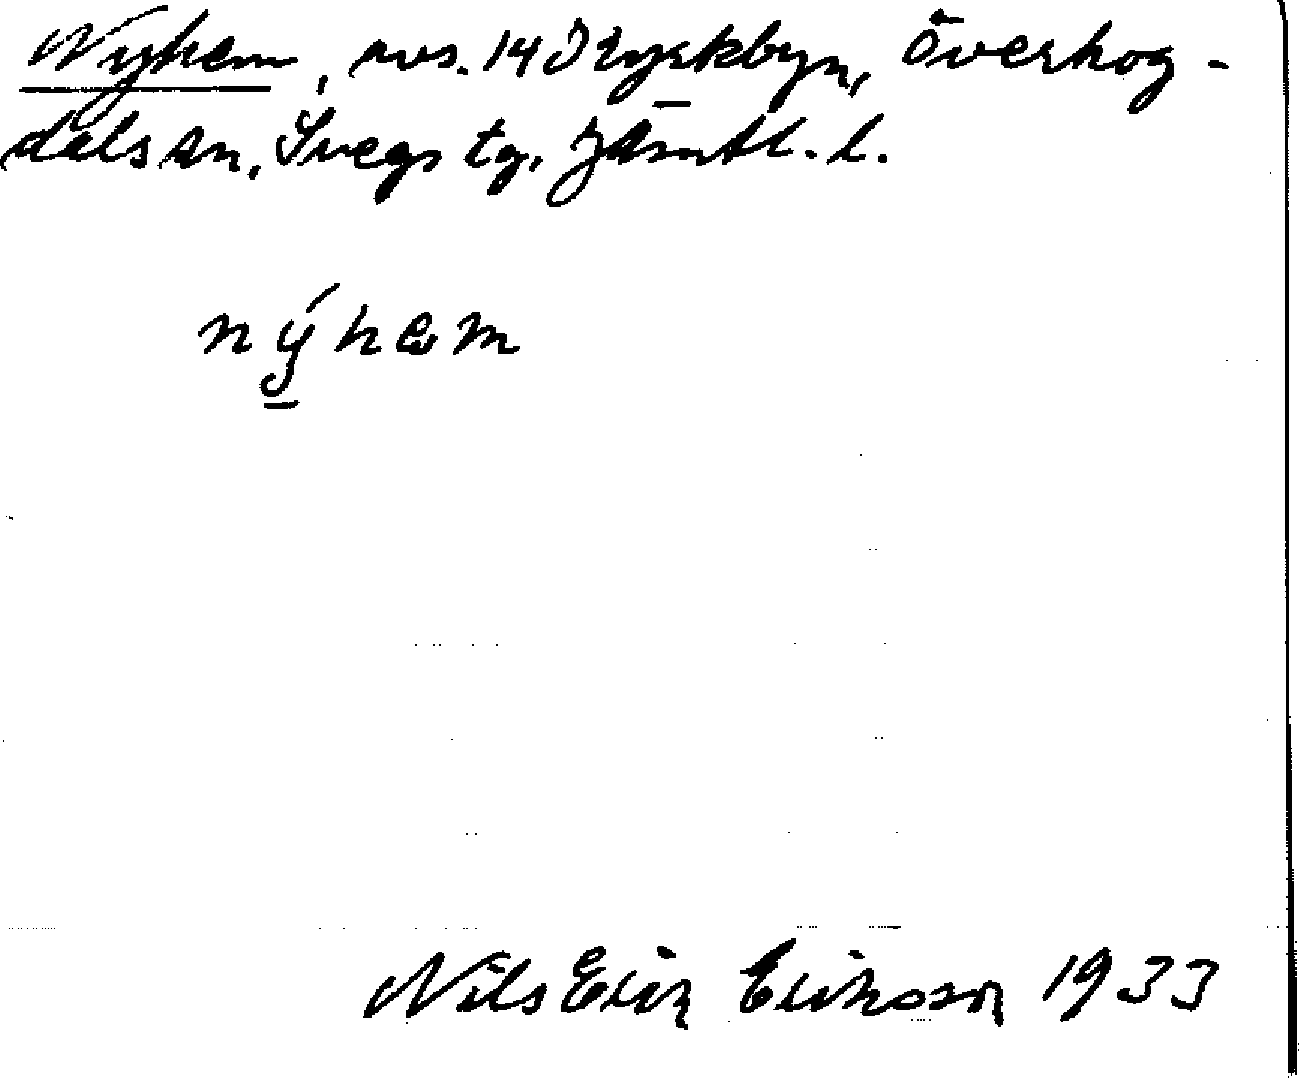 Nyhem, avs. 14 Kyrkbyn, Överhog-
dals sn, Svegs tg, Jämtl. l.
nýhem
Nils Erik Eriksson 1933